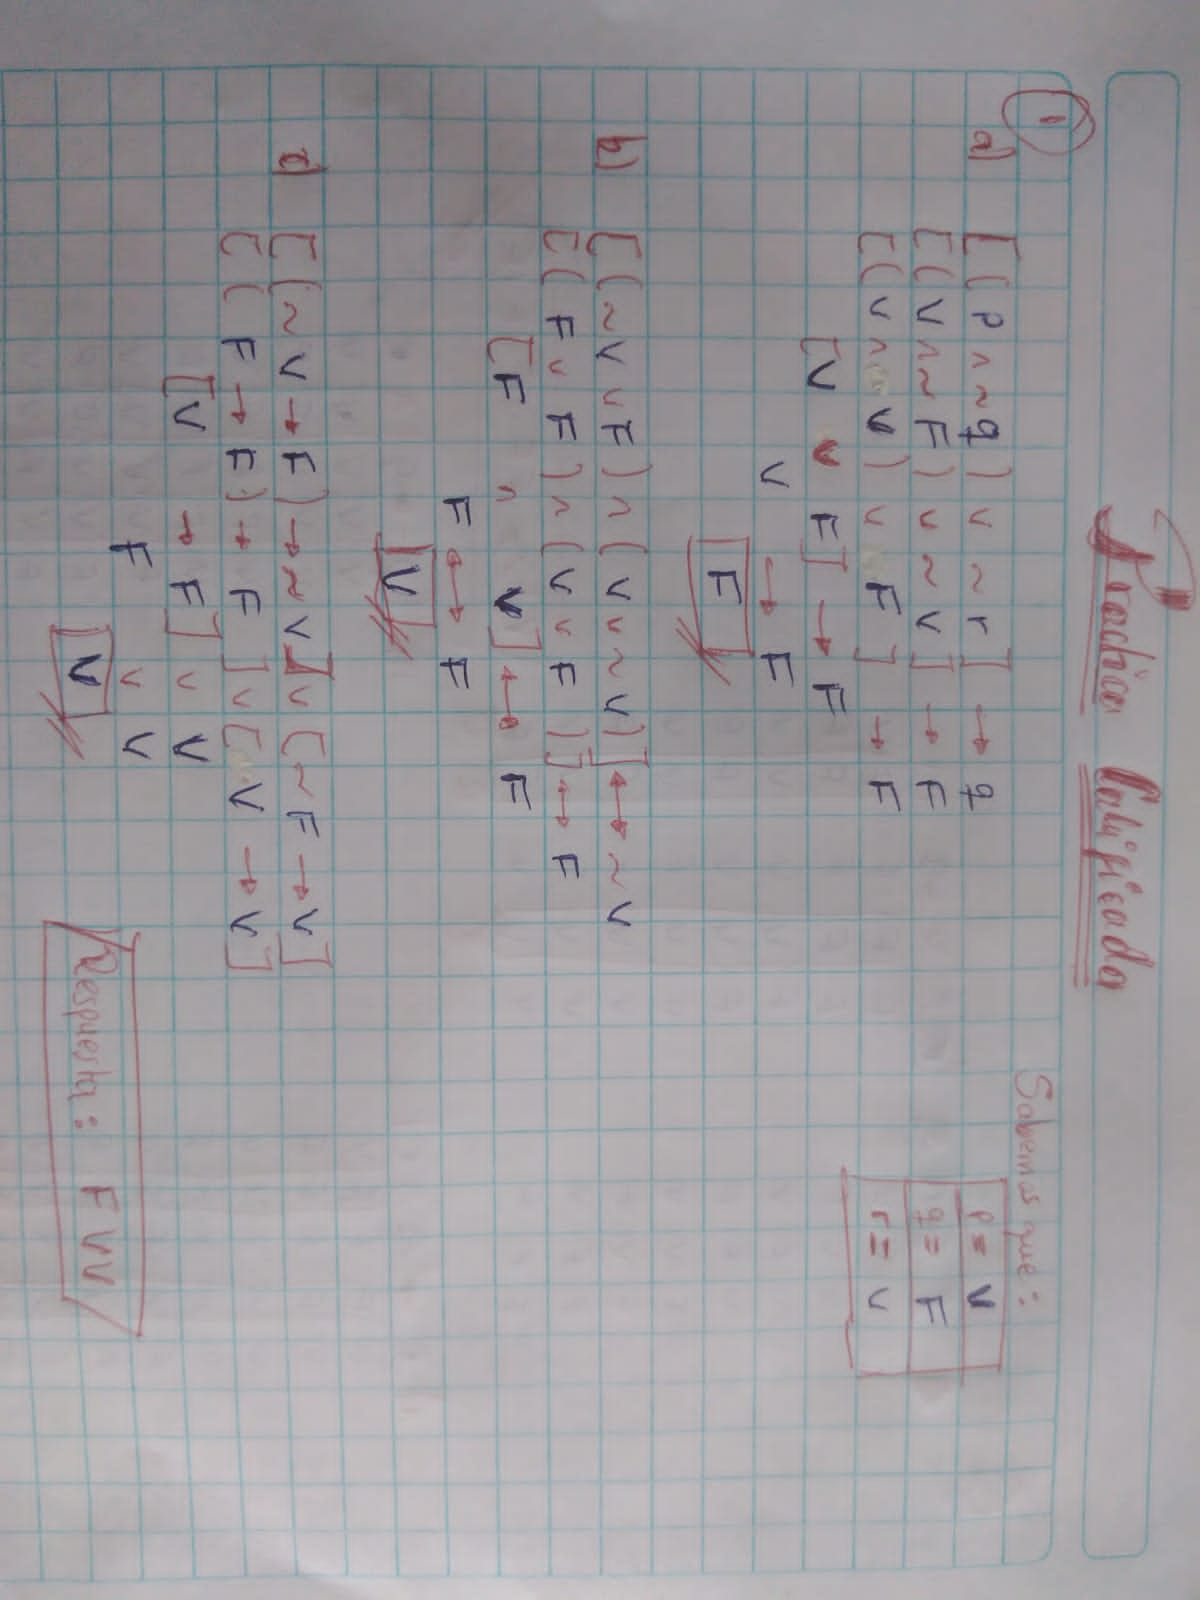 Práctica Calificada
Sabemos que:
p = V
q = F
r = V
1
a) [(p ∧ ~q) ∨ ~r] → q
[(V ∧ ~F) ∨ ~V] → F
[(V ∧ V) ∨ F] → F
[V ∨ F] → F
V → F
F
b) [(~V ∨ F) ∧ (V ∨ ~V)] ↔ ~V
[(F ∨ F) ∧ (V ∨ F)] ↔ F
[F ∧ V] ↔ F
F ↔ F
V
c) [(~V → F) → ~V] ∨ [~F → V]
[(F → F) → F] ∨ [V → V]
[V → F] ∨ V
F ∨ V
V
Respuesta: FVV